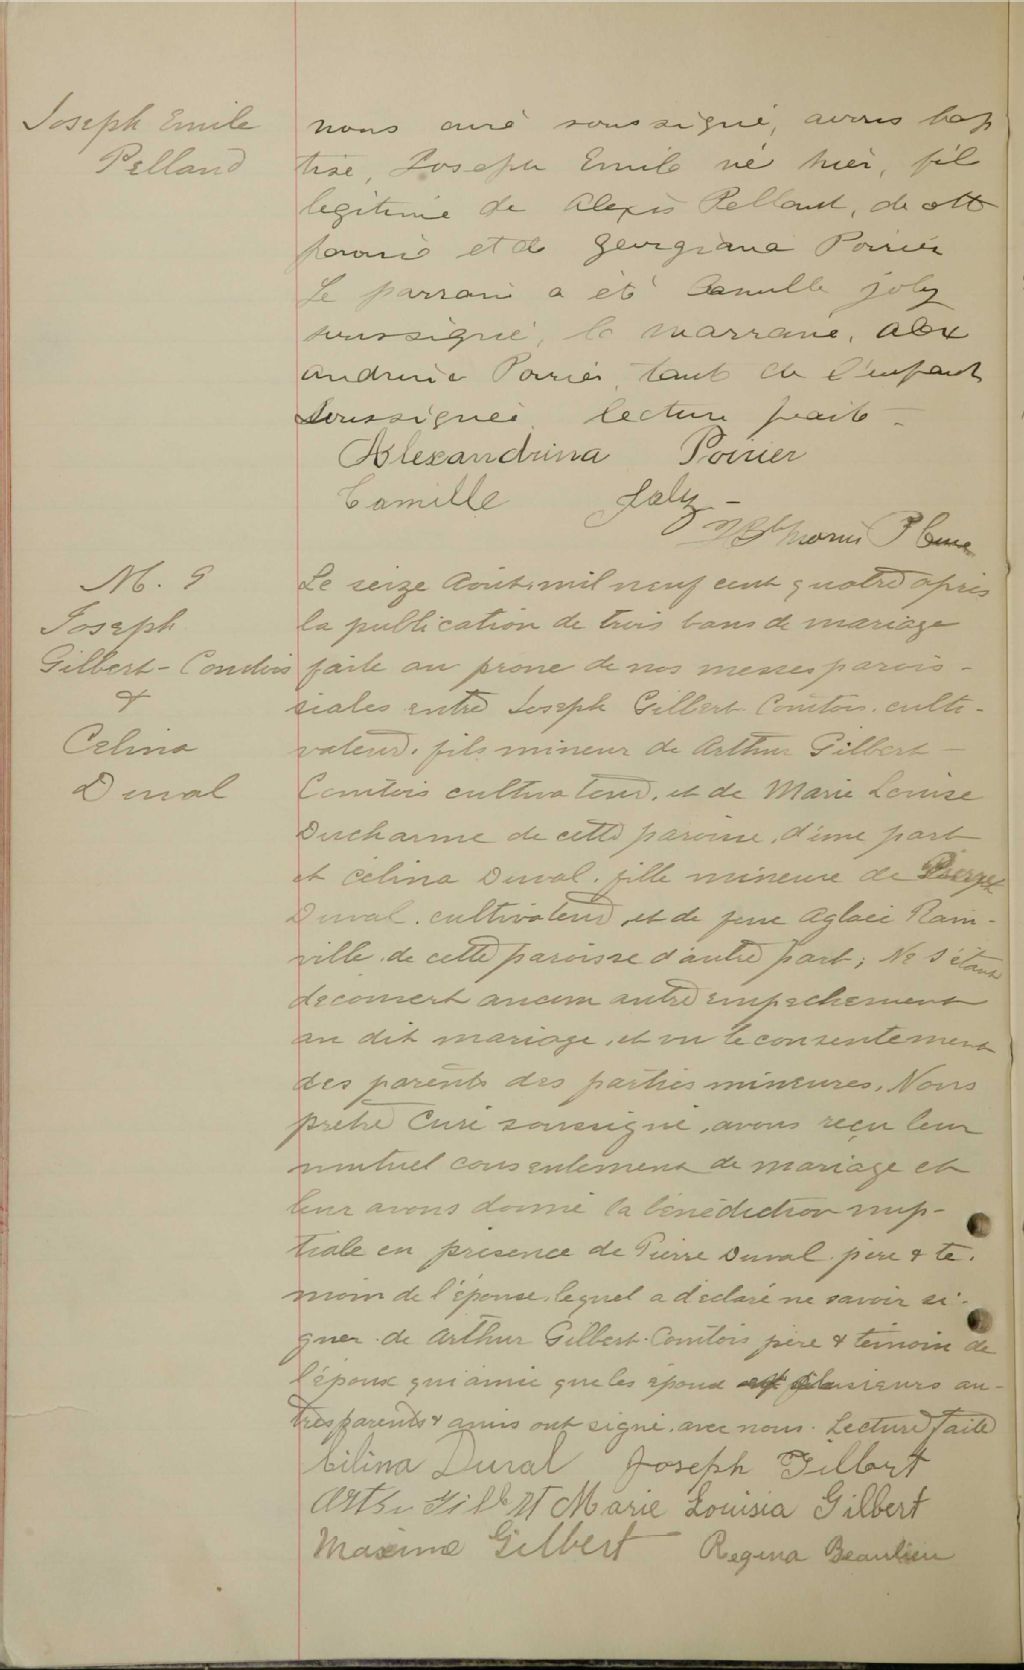 Joseph Emile
Pelland
nous curé soussigné, avons bap
tisé, Joseph Emile né hier, fil
legitime de Alexis Pelland, de cett
paroise et de Georgiana Poirier
Le parrain a été Camille Joly
soussigné, la marraine, Alex
andrine Poirier, tante de l'enfant
soussignée. lecture faite -
Alexandrina Poirier
Camille Joly -
Ptre Curé
M. 9
Joseph
Gilbert-Comtois
&
Celina
Duval
Le seize Aout mil neuf cent quatre après
la publication de trois bans de mariage
faite au prone de nos messes parois-
siales entre Joseph Gilbert-Comtois, culti-
vateur, fils mineur de Arthur Gilbert-
Comtois cultivateur, et de Marie Louise
Ducharme de cette paroisse, d'une part
et Célina Duval, fille mineure de Pierre
Duval, cultivateur, et de feue Aglaée Rain-
ville, de cette paroisse d'autre part; Ne s'étant
découvert aucun autre empechement
au dit mariage, et vu le consentement
des parents des parties mineures, Nous
prêtre Curé soussigné, avons reçu leur
mutuel consentement de mariage et
leur avons donné la bénédiction nup-
tiale en présence de Pierre Duval père & té-
moin de l'épouse, lequel a déclaré ne savoir si-
gner. de Arthur Gilbert-Comtois père & témoin de
l'époux qui ainsi que les époux et plusieurs au-
tres parents & amis ont signé avec nous. Lecture faite
Cilina Duval Joseph Gilbert
Gilbert Marie Louisia Gilbert
Maxime Gilbert Regina Beaulieu